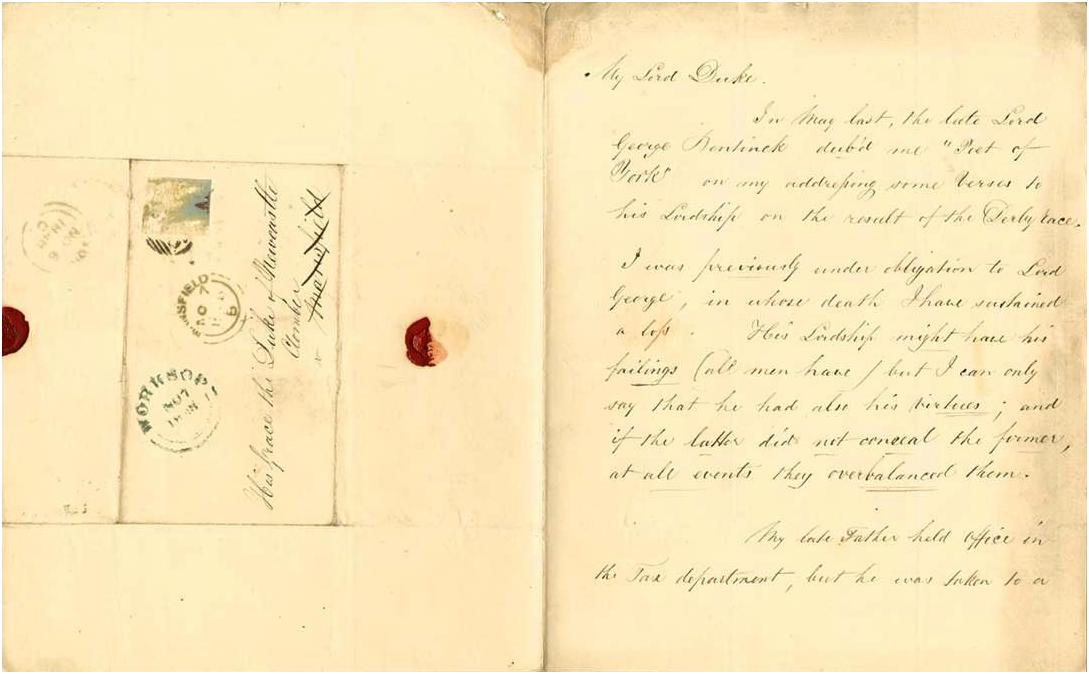 His Grace the Duke of Newcastle
Clomber
Mansfield
MANSFIELD
WORKSOP
NO 7
My Lord Duke.
In May last, the late Lord
George Bentinck dub'd me "Poet of
York" on my addressing some Verses to
his Lordship on the result of the Derby race.
I was previously under obligation to Lord
George, in whose death I have sustained
a loss. His Lordship might have his
failings (all men have) but I can only
say that he had also his virtues; and
if the latter did not conceal the former,
at all events they overbalanced them.
My late Father held office in
the Tax department, but he was taken to a